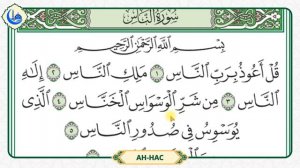 سُورَةُ النَّاسِ
بِسْمِ اللَّهِ الرَّحْمَٰنِ الرَّحِيمِ
قُلْ أَعُوذُ بِرَبِّ النَّاسِ ١ مَلِكِ النَّاسِ ٢ إِلَٰهِ
النَّاسِ ٣ مِن شَرِّ الْوَسْوَاسِ الْخَنَّاسِ ٤ الَّذِي
يُوَسْوِسُ فِي صُدُورِ النَّاسِ ٥
АН-НАС